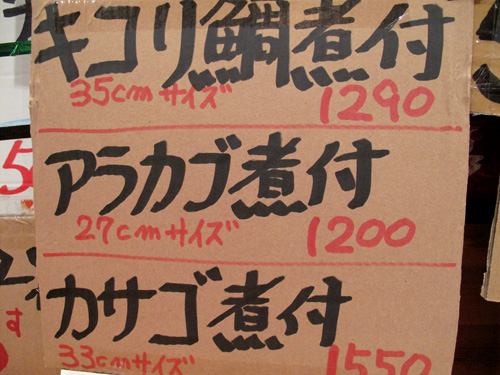 キコリ鯛煮付
35cmサイズ 1290
アラカブ煮付
27cmサイズ 1200
カサゴ煮付
33cmサイズ 1550
す